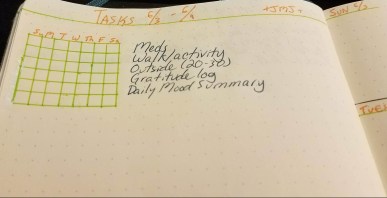 TASKS 6/3 - 6/9
+JMJ+
Su M T W Th F Sa
Meds
Walk/activity
Outside (20-30)
Gratitude log
Daily Mood Summary
Tues